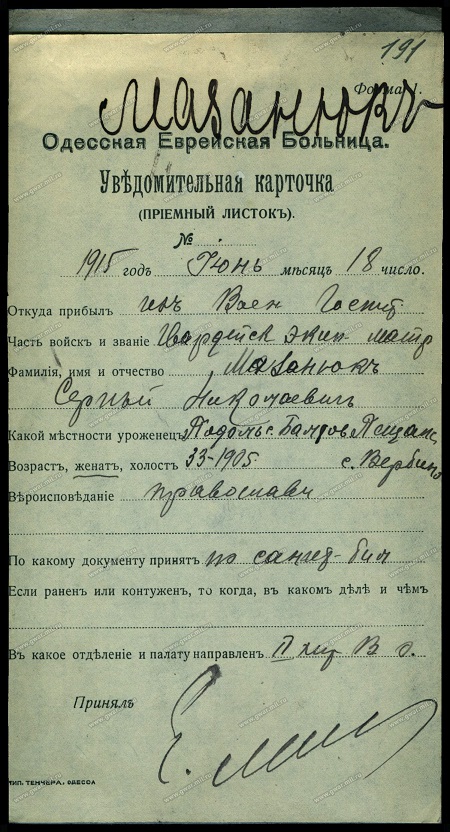 191
Форма 1.
Мазанюкъ
Одесская Еврейская Больница.
Увѣдомительная карточка
(ПРІЕМНЫЙ ЛИСТОКЪ).
№
1915 годъ Іюнь мѣсяцъ 18 число.
Откуда прибылъ изъ Воен Госпит
Часть войскъ и званіе Гвардейск экип матр
Фамилія, имя и отчество Мазанюкъ
Сергѣй Николаевичъ
Какой мѣстности уроженецъ Подольс. Балтов Песчан
Возрастъ, женатъ, холостъ 33-1905 с. Вербино
Вѣроисповѣданіе православн
По какому документу принятъ по санит-бил
Если раненъ или контуженъ, то когда, въ какомъ дѣлѣ и чѣмъ
Въ какое отдѣленіе и палату направленъ II хир В о.
Принялъ
ТИП. ТЕНЧЕРА, ОДЕССА
www.gwar.mil.ru